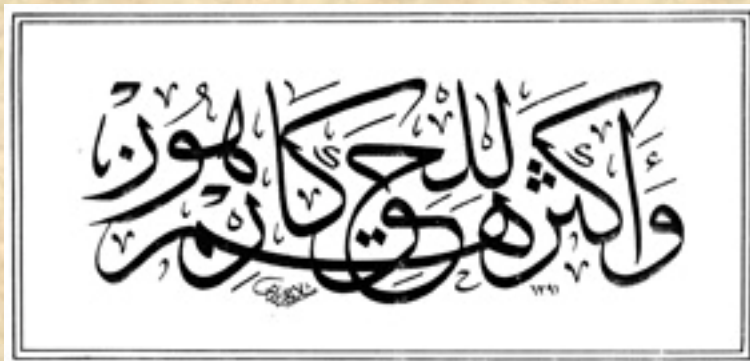 وَأَكْثَرُهُمْ لِلْحَقِّ كَارِهُونَ